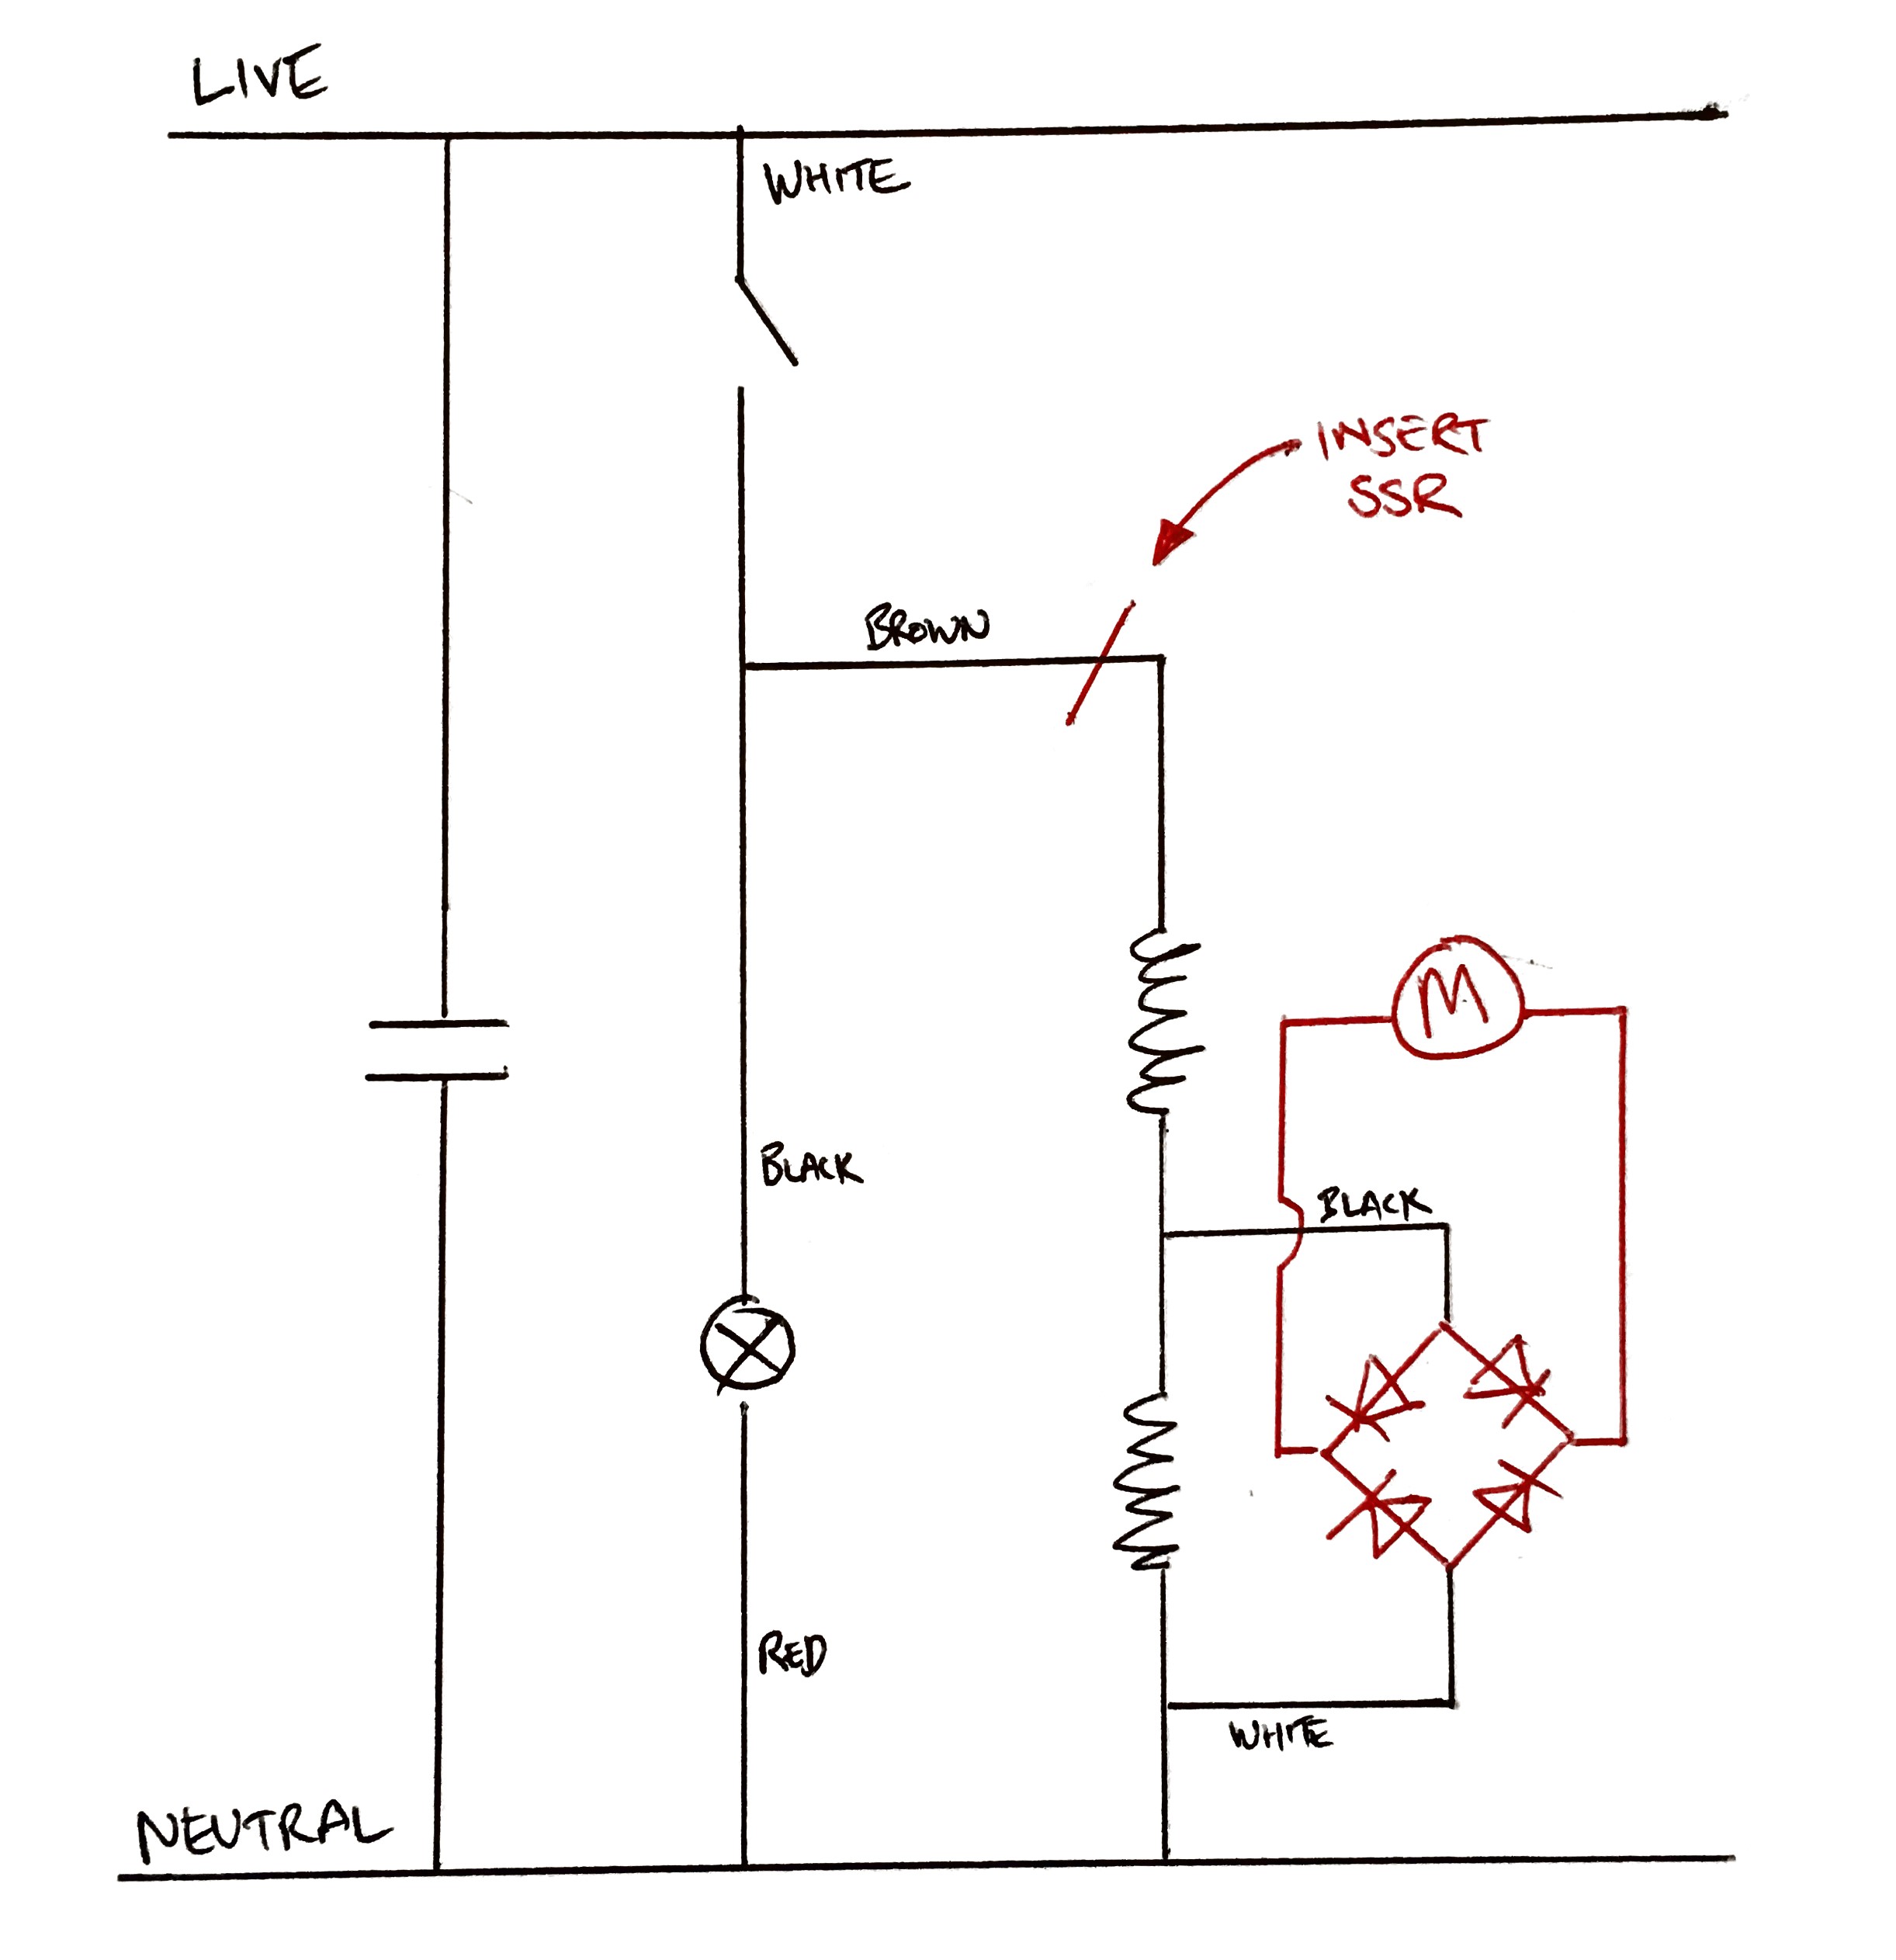 LIVE
WHITE
INSERT
SSR
BROWN
M
BLACK
BLACK
RED
WHITE
NEUTRAL